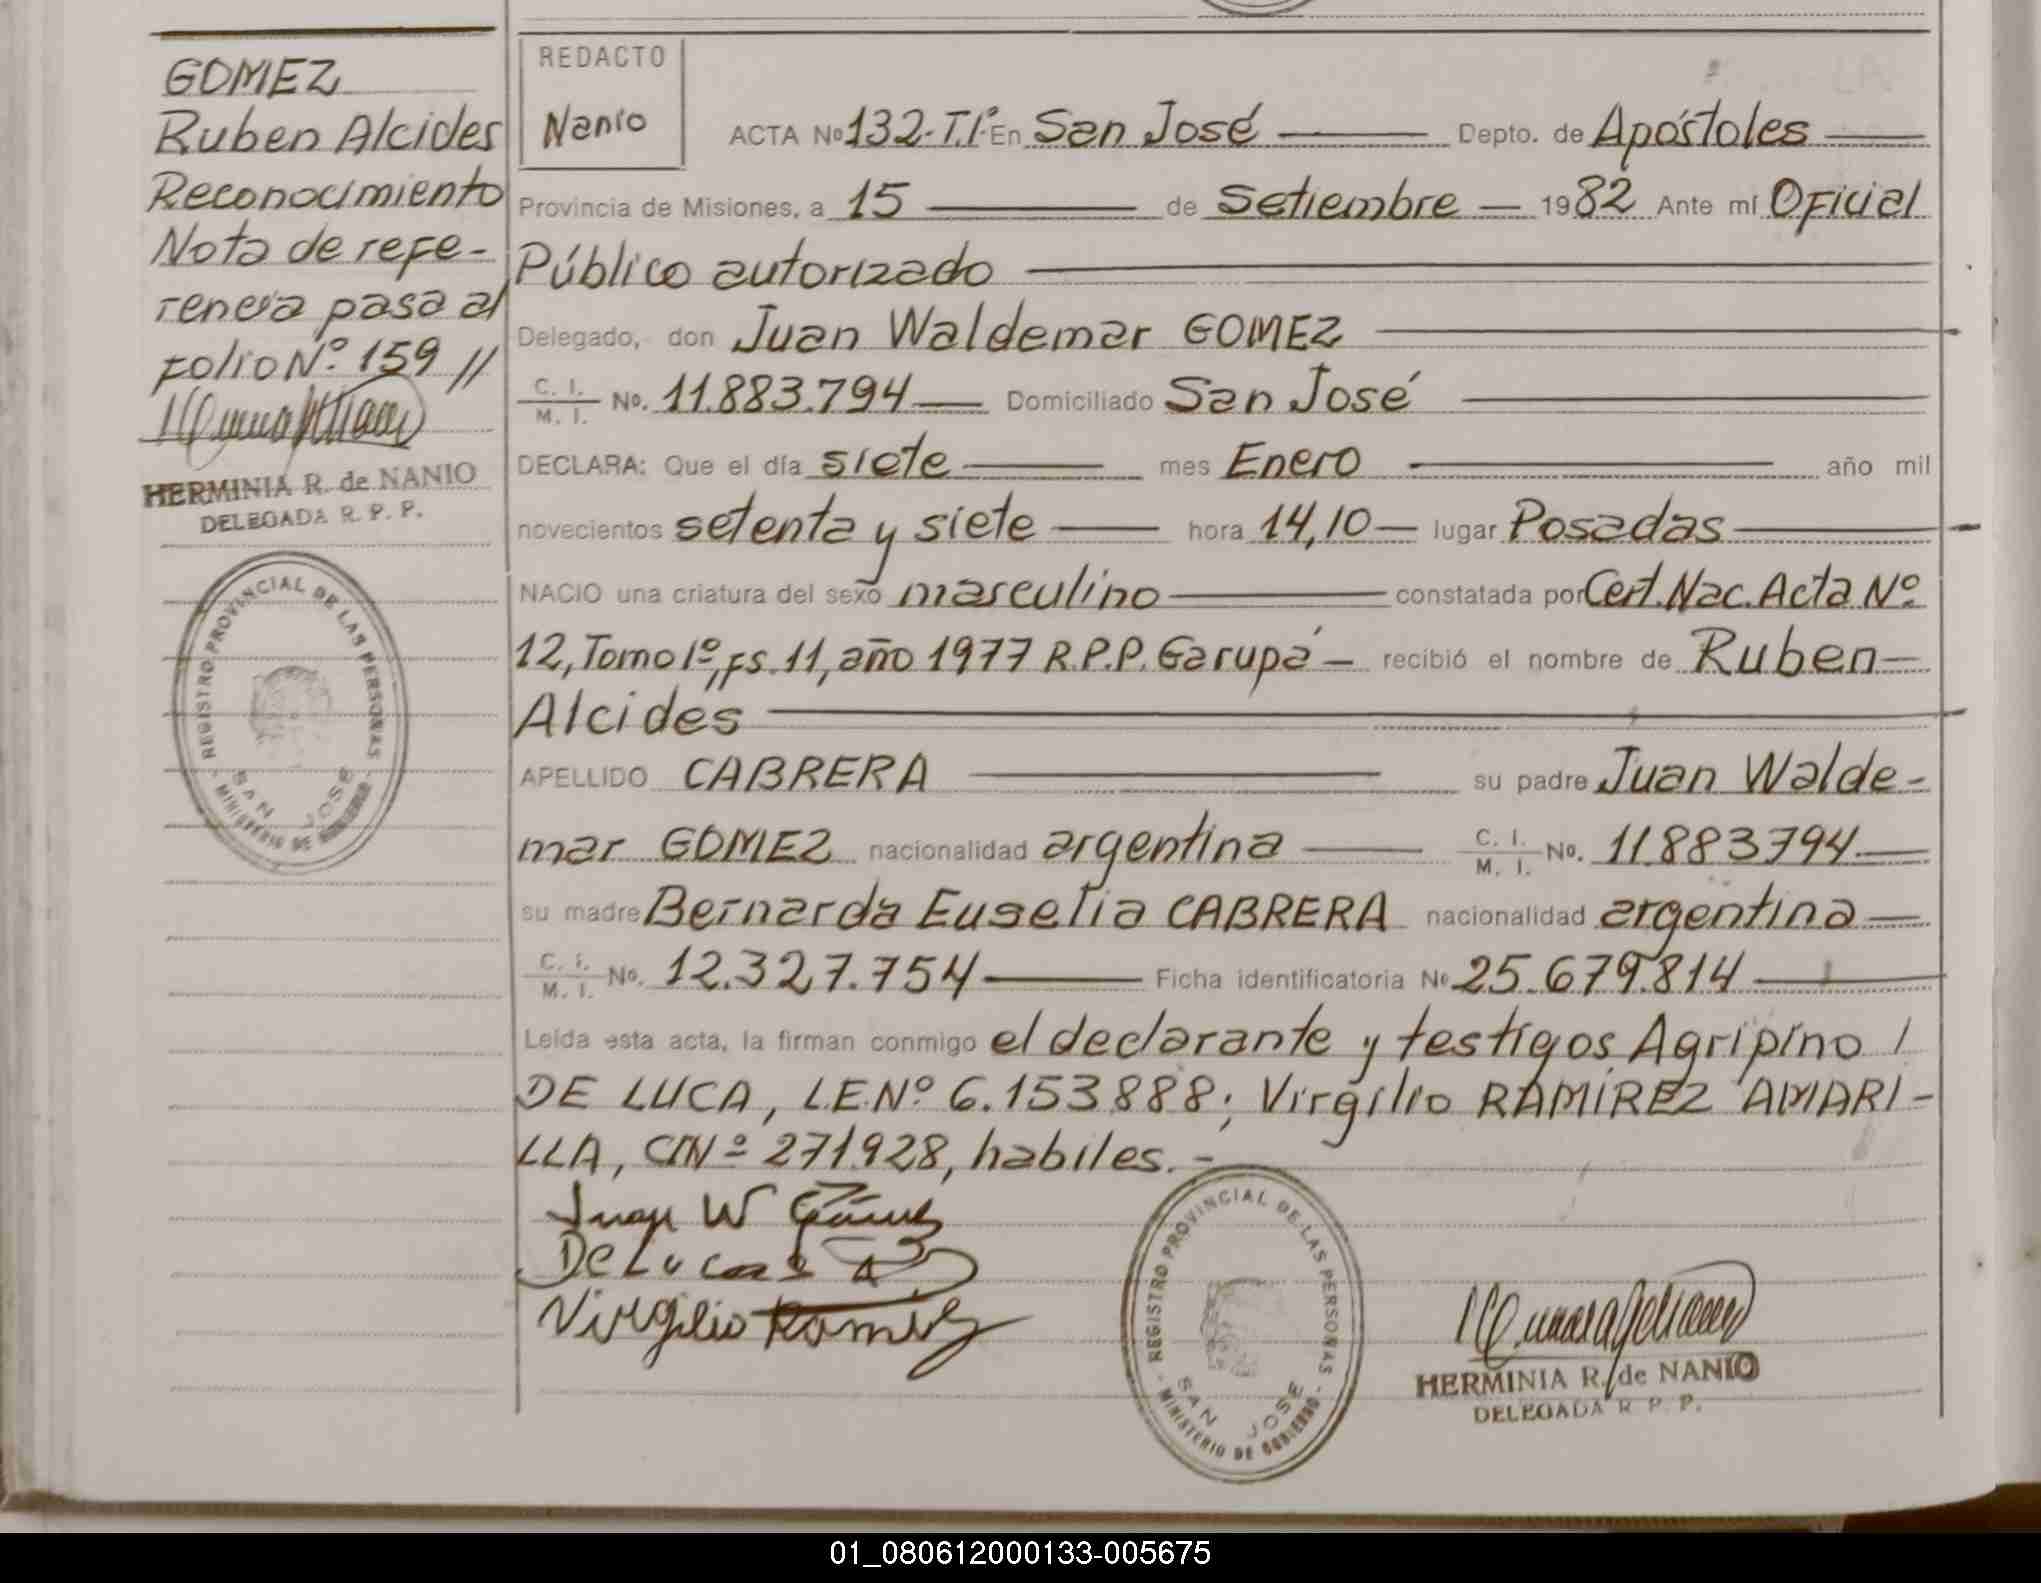 GOMEZ
Ruben Alcides
Reconocimiento
Nota de refe-
rencia pasa al
folio Nº 159 //
HERMINIA R. de NANIO
DELEGADA R. P. P.
REGISTRO PROVINCIAL DE LAS PERSONAS
SAN JOSE
- MINISTERIO DE GOBIERNO -
REDACTO
Nanio
ACTA Nº 132-T.1º En San José Depto. de Apóstoles
Provincia de Misiones, a 15 de Setiembre 1982 Ante mí Oficial
Público autorizado
Delegado, don Juan Waldemar GOMEZ
C. I. / M. I. No. 11.883.794 Domiciliado San José
DECLARA: Que el día siete mes Enero año mil
novecientos setenta y siete hora 14,10 lugar Posadas
NACIO una criatura del sexo masculino constatada por Cert. Nac. Acta Nº
12, Tomo 1º, fs. 11, año 1977 R.P.P. Garupá recibió el nombre de Ruben
Alcides
APELLIDO CABRERA su padre Juan Walde-
mar GOMEZ nacionalidad argentina C. I. / M. I. No. 11883794
su madre Bernarda Euselia CABRERA nacionalidad argentina
C. I. / M. I. No. 12.327.754 Ficha identificatoria Nº 25.679.814
Leída esta acta, la firman conmigo el declarante y testigos Agripino
DE LUCA, L.E.Nº 6.153.888; Virgilio RAMIREZ AMARI-
LLA, CINº 271.928, habiles.-
Juan W Gómez
De Luca
Virgilio Ramirez
REGISTRO PROVINCIAL DE LAS PERSONAS
SAN JOSE
- MINISTERIO DE GOBIERNO -
HERMINIA R. de NANIO
DELEGADA R. P. P.
01_080612000133-005675